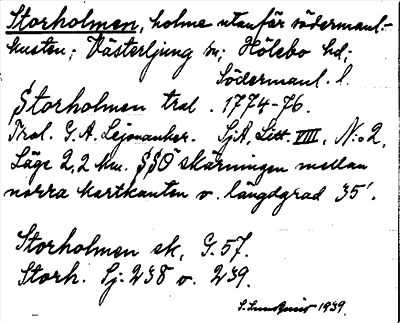 Storholmen, holme utanför södermanl.-
kusten; Västerljung sn; Hölebo hd;
Södermanl. l.
Storholmen tral. 1774-76.
Tral. G. A. Lejonanker. SjA, Litt. VIII, No 2.
Läge 2,2 km. SSÖ skärningen mellan
norra kartkanten o. längdgrad 35'.
Storholmen ek, G. 57.
Storh. Sj. 238 o. 239.
1939.